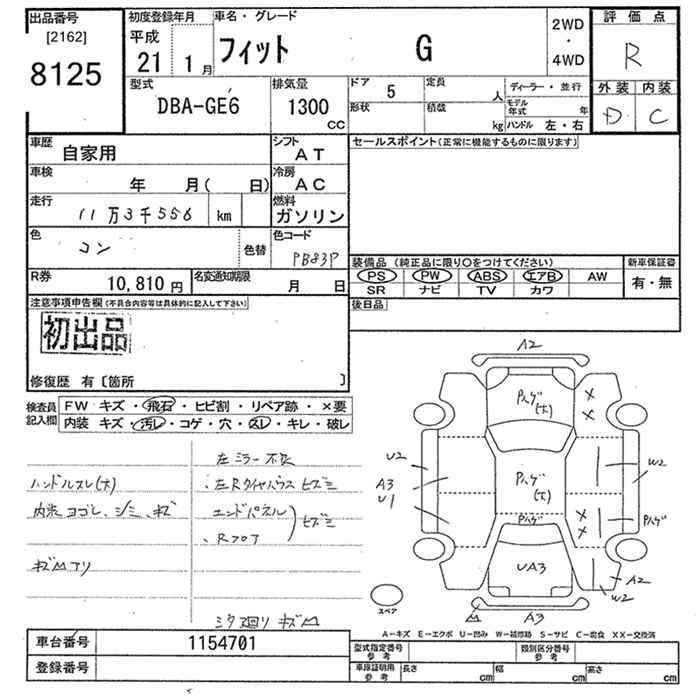 出品番号 初度登録年月 車名・グレード 2WD 評価点
[2162] 平成 ・
8125 21 1月 フィット G 4WD R
型式 排気量 ドア 5 定員 人 ディーラー・並行 外装 内装
DBA-GE6 1300 CC 形状 積載 kg モデル年式 年 D C
ハンドル 左・右
車歴 自家用 シフト AT セールスポイント(正常に機能するものに限ります)
車検 年 月( 日) 冷房 AC
走行 11万3千556 km 燃料 ガソリン
色 コン 色替 色コード PB83P
装備品 (純正品に限り○をつけてください) 新車保証書
PS PW ABS エアB AW 有・無
SR ナビ TV カワ
R券 10,810円 名変通知期限 月 日
後日品
注意事項申告欄(不具合内容等は具体的に記入して下さい)
初出品
修復歴 有〔箇所 〕
検査員記入欄 FW キズ・飛石・ヒビ割・リペア跡・×要
内装 キズ・汚レ・コゲ・穴・スレ・キレ・破レ
左ミラー不良
ハンドルスレ(大) ・左Rタイヤハウスヒズミ
内装ヨゴレ、シミ、キズ エンドパネル
・Rフロア ヒズミ
キズ凹アリ
下廻りキズ凹
A2
Pハゲ(大) × ×
U2 W2
A3 Pハゲ(大)
U1
Pハゲ × × Pハゲ
UA3 A2
W2
スペア 凹 A3
A―キズ E―エクボ U―凹み W―補修跡 S―サビ C―腐食 XX―交換済
車台番号 1154701 型式指定番号参考 類別区分番号参考
登録番号 車庫証明用参考 長さ cm 幅 cm 高さ cm